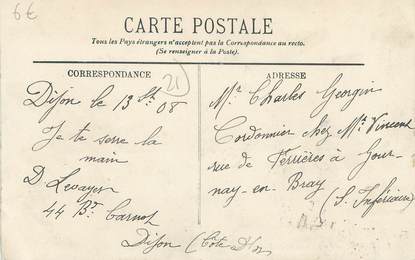 6€
CARTE POSTALE
Tous les Pays étrangers n'acceptent pas la Correspondance au recto.
(Se renseigner à la Poste).
CORRESPONDANCE
21
Dijon le 13 St 08
Je te serre la
main
D. Levayer
44 Bd Carnot
Dijon (Côte d'Or
ADRESSE
Mr Charles Georgin
Cordonnier chez Mr Vincent
rue de Ferrières à Gour-
nay-en-Bray
(S. Inférieure)